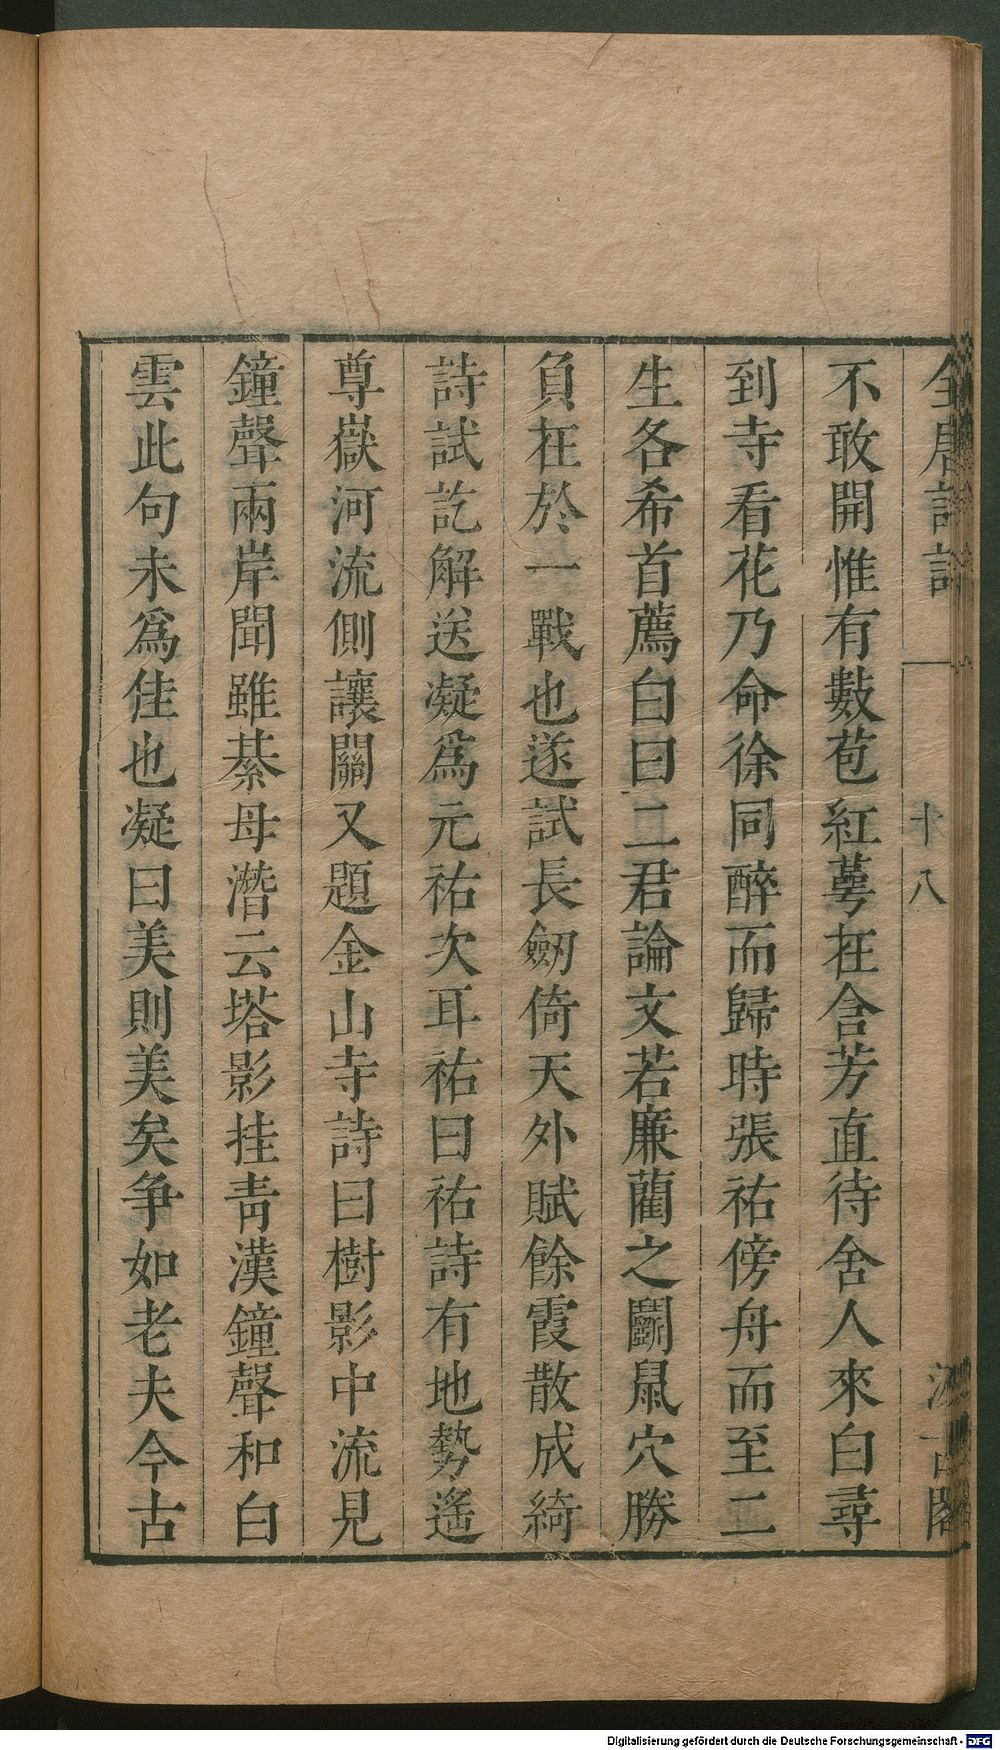 全唐詩話
十八
汲古閣
不敢開惟有數苞紅蕚在含芳直待舍人來白尋
到寺看花乃命徐同醉而歸時張祐傍舟而至二
生各希首薦白曰二君論文若廉藺之鬭鼠穴勝
負在於一戰也遂試長劒倚天外賦餘霞散成綺
詩試訖解送凝爲元祐次耳祐曰祐詩有地勢遙
尊嶽河流側讓關又題金山寺詩曰樹影中流見
鐘聲兩岸聞雖綦母潛云塔影挂靑漢鐘聲和白
雲此句未爲佳也凝曰美則美矣争如老夫今古
Digitalisierung gefördert durch die Deutsche Forschungsgemeinschaft - DFG